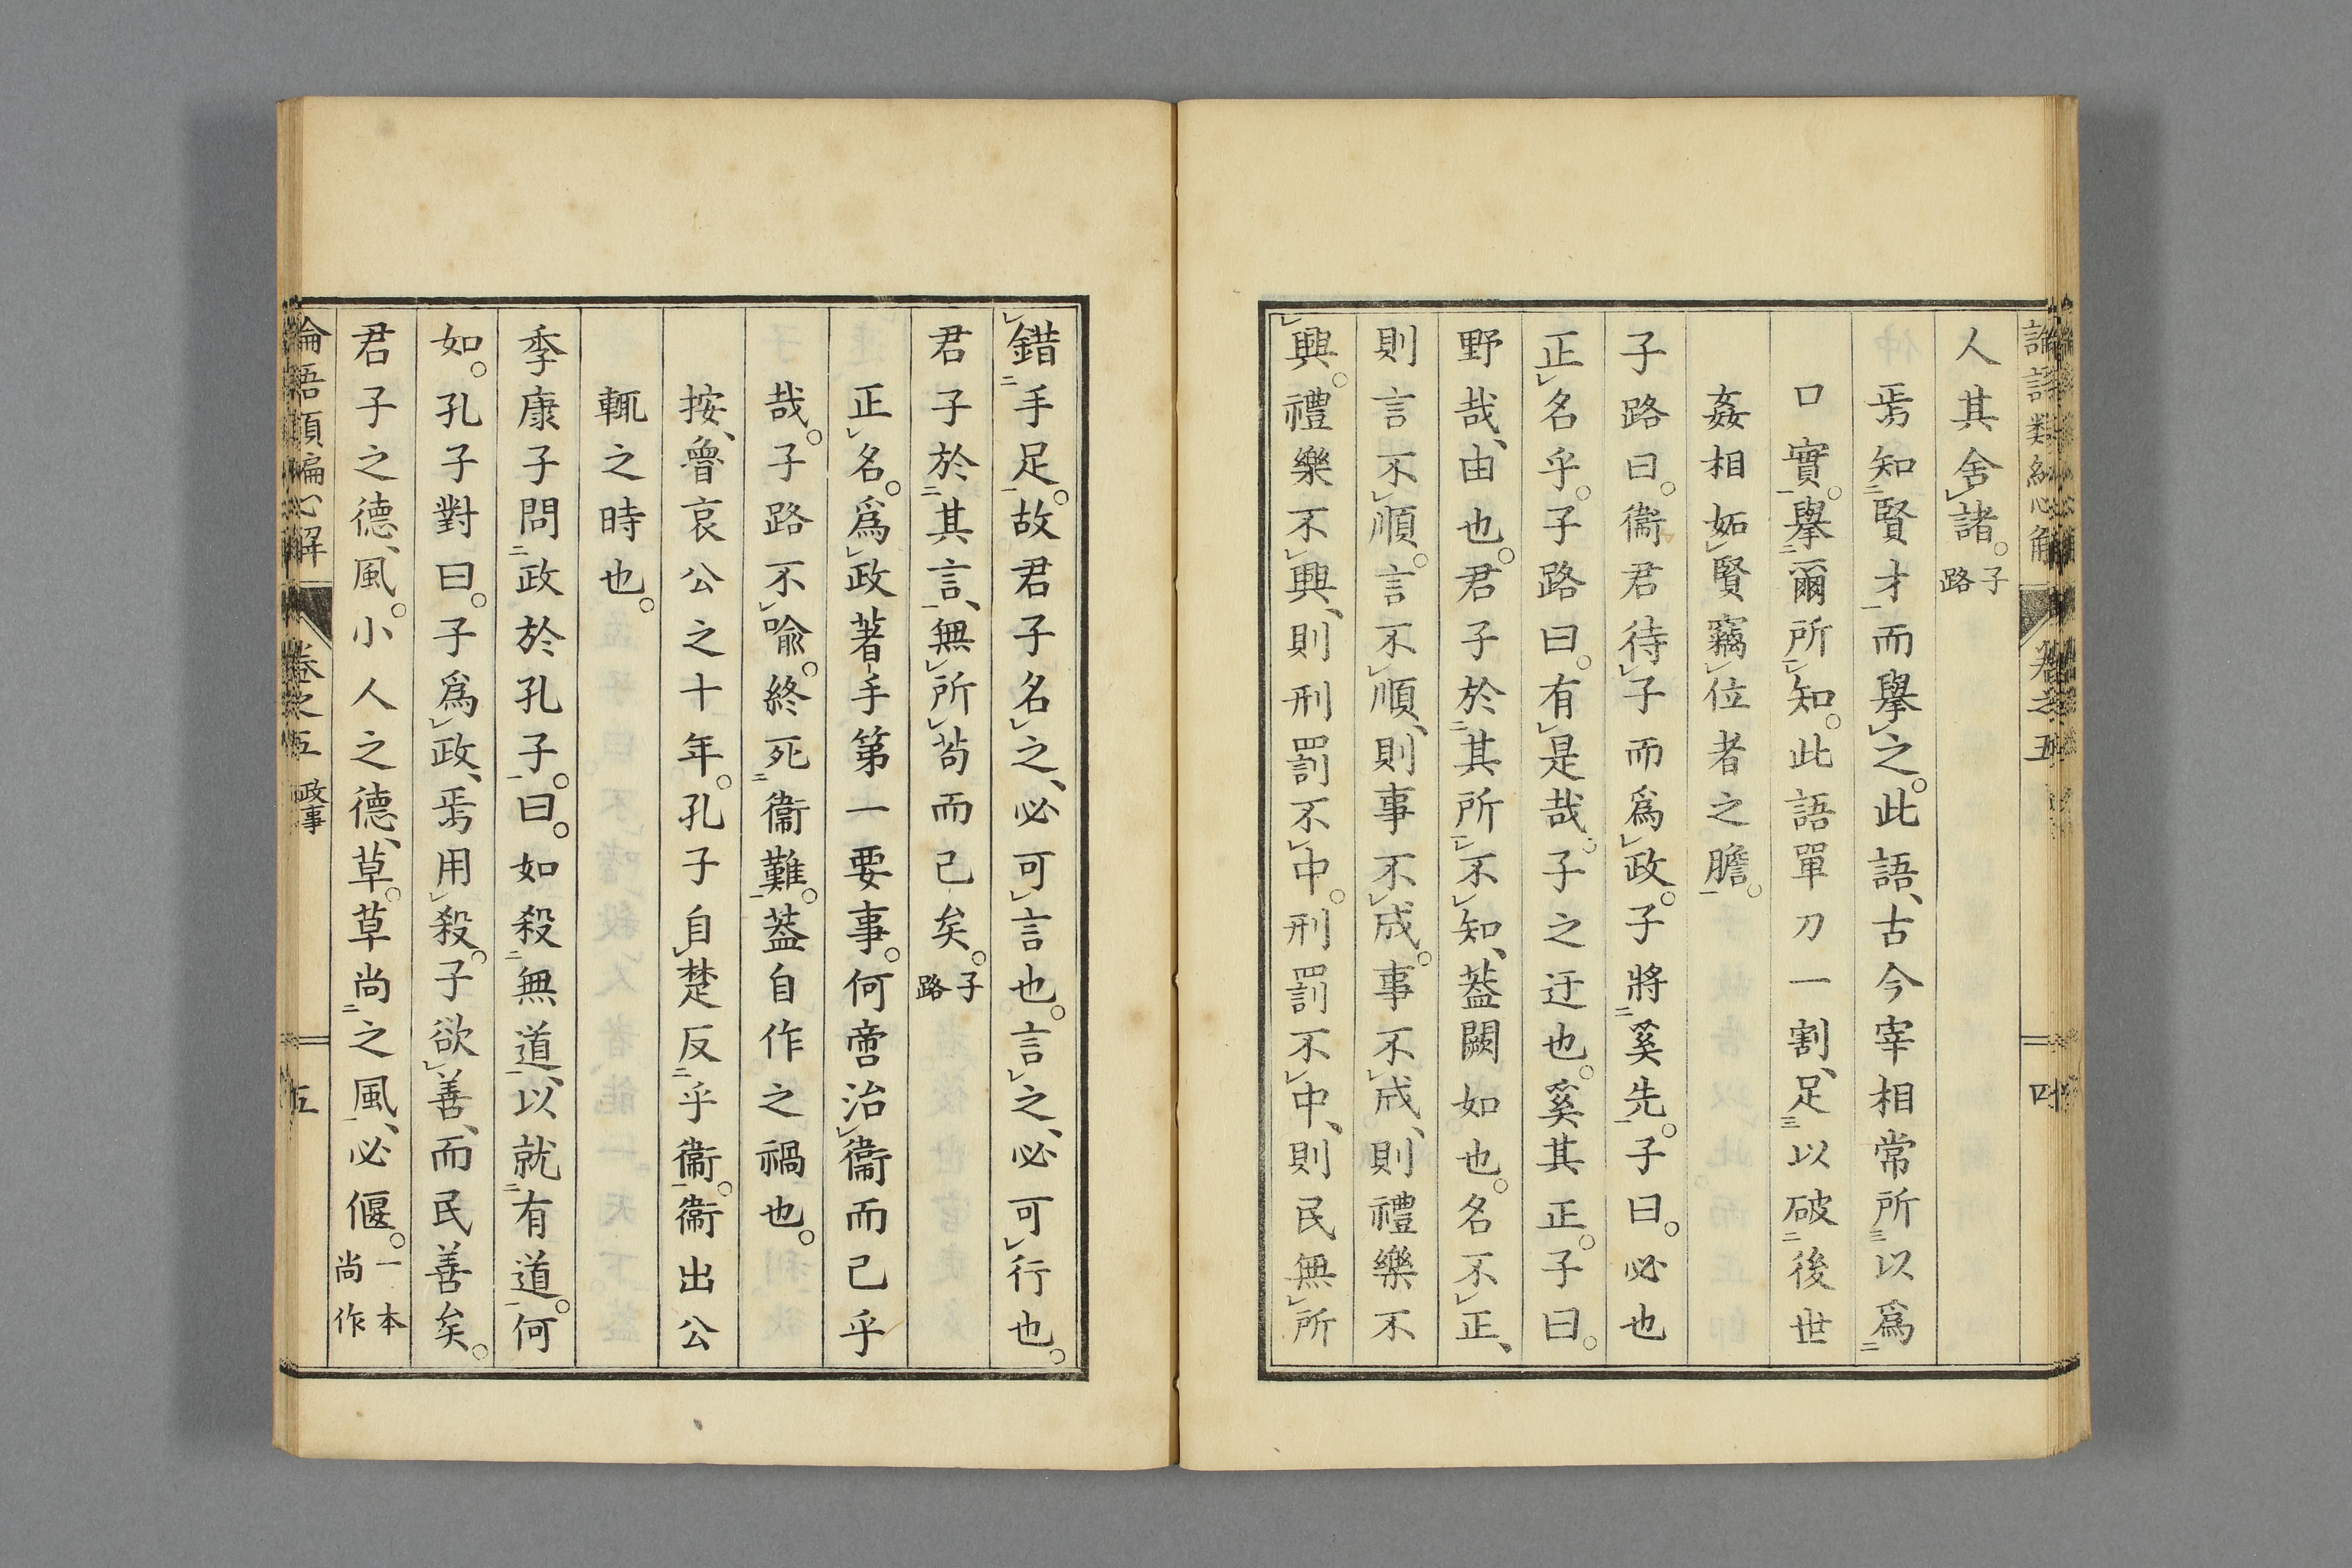 論語類編心解 卷之五 四
人其舍諸。子路
焉知賢才而擧之。此語、古今宰相常所以爲
口實。擧爾所知。此語單刀一割、足以破後世
姦相妬賢竊位者之膽。
子路曰。衞君待子而爲政。子將奚先。子曰。必也
正名乎。子路曰。有是哉。子之迂也。奚其正。子曰。
野哉、由也。君子於其所不知、蓋闕如也。名不正、
則言不順。言不順、則事不成。事不成、則禮樂不
興。禮樂不興、則刑罰不中。刑罰不中、則民無所
錯手足。故君子名之、必可言也。言之、必可行也。
君子於其言、無所苟而已矣。子路
正名。爲政著手第一要事。何啻治衞而已乎
哉。子路不喩。終死衞難。蓋自作之禍也。
按、魯哀公之十年。孔子自楚反乎衞。衞出公
輒之時也。
季康子問政於孔子。曰。如殺無道、以就有道。何
如。孔子對曰。子爲政、焉用殺。子欲善、而民善矣。
君子之德、風。小人之德、草。草尚之風、必偃。一本尚作
論語類編心解 卷之五 政事 五